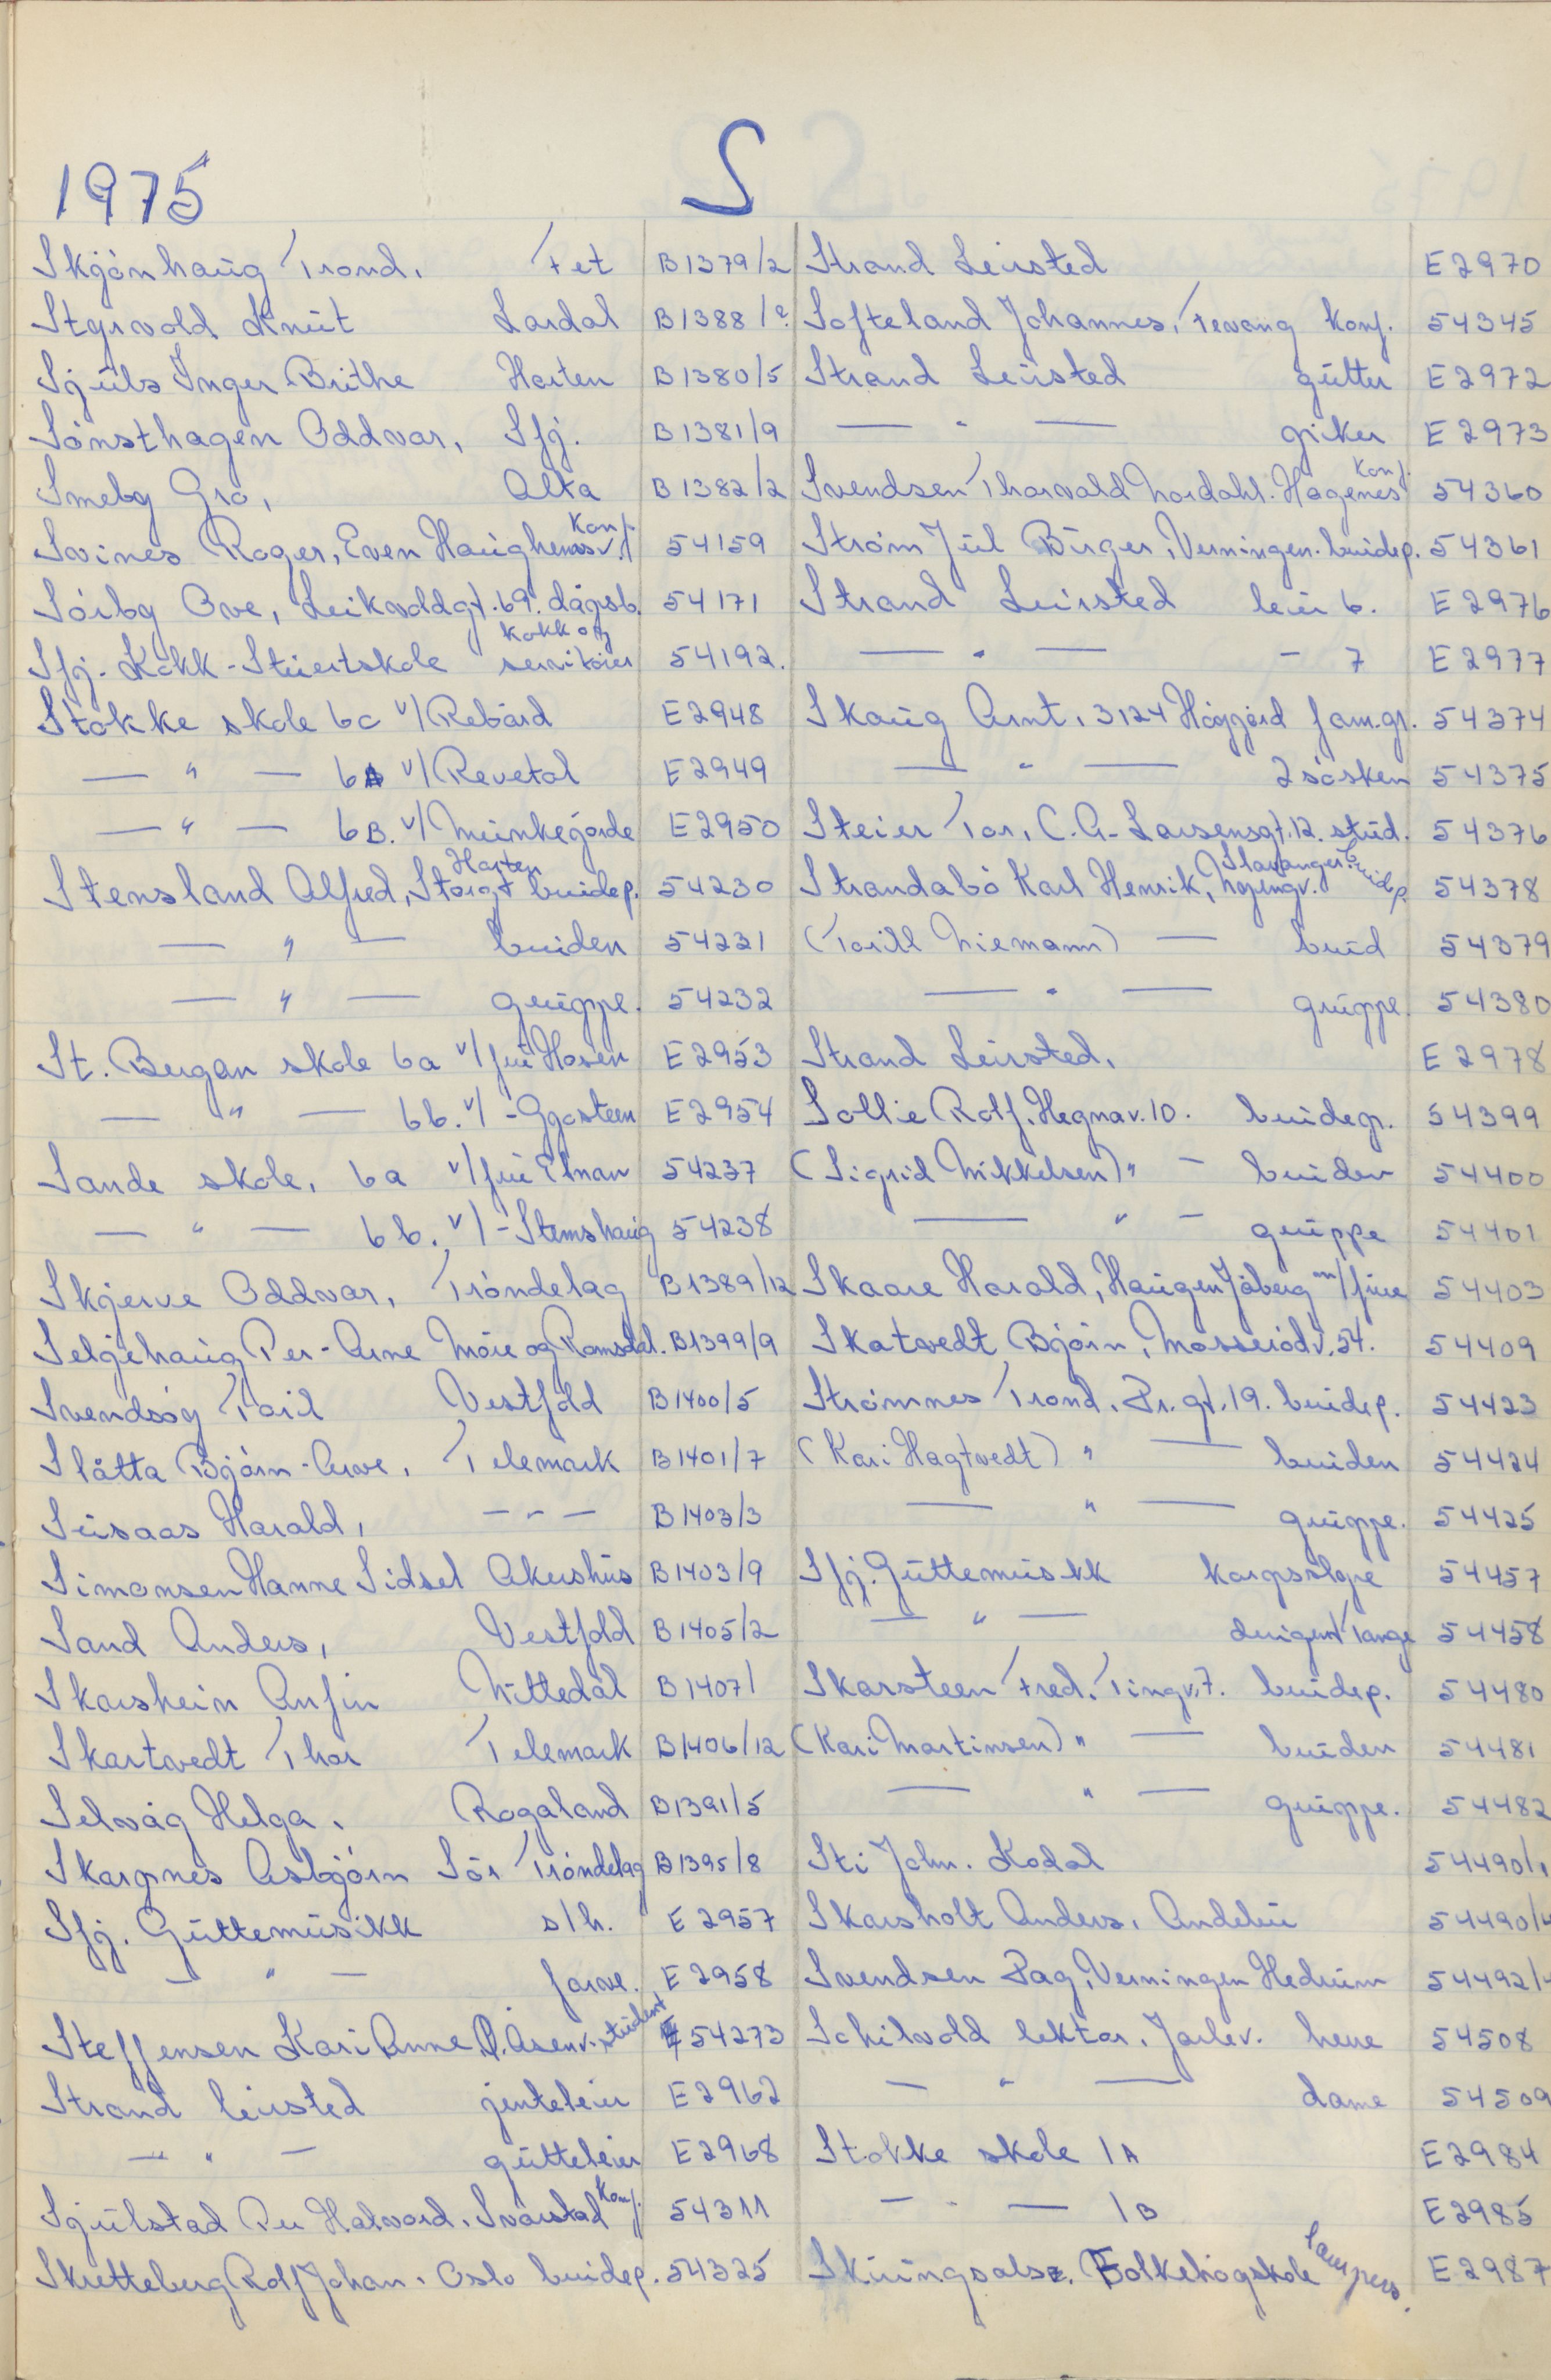 S
1975
Skjönhaug Trond. Fet B1379/2
Styrvold Knut Lardal B1388/2
Sjuls Inger Brithe Horten B1380/5
Sönsthagen Oddvar, Sfj. B1381/9
Smeby Gro, Alta B1382/2
Svines Roger, Even Haughemsv. Konf. 54159
Sörby Ove, Leikvollgt. 69. dågsb. 54171
Sfj. Kokk-Stuertskole kokk og servitører 54192.
Stokke skole 6c v/ Rebård E2948
— " — 6A v/ Revetal E2949
— " — 6B. v/ Munkegjorde E2950
Stensland Alfred, Storgt Horten brudep. 54230
— " — bruden 54231
— " — gruppe. 54232
St. Bergan skole 6a v/ fru Hosen E2953
— " — 6b. v/ - Gjosteen E2954
Sande skole, 6a v/ fru Elnan 54237
— " — 6b. v/ - Stemshaug 54238
Skjerve Oddvar, Tröndelag B1389/12
Seljehaug Per-Arne Möre og Romsdal. B1399/9
Svendsöy Toril Vestfold B1400/5
Slåtta Björn-Arve, Telemark B1401/7
Susaas Harald, - - - B1403/3
Simonsen Hanne Sidsel Akershus B1403/9
Sand Anders, Vestfold B1405/2
Skarshein Anfin Nittedal B1407/
Skartvedt Thor Telemark B1406/12
Selvåg Helga, Rogaland B1391/5
Skarpnes Asbjörn Sör Tröndelag B1395/8
Sfj. Guttemusikk s/h. E2957
— " — farve. E2958
Steffensen Kari Anne, Ö. Åsenv. student 54273
Strand leirsted jenteleir E2962
— " — gutteleir E2968
Sjulstad Per Halvard. Svarstad Konf. 54311
Skretteberg Rolf Johan. Oslo brudep. 54325
Strand Leirsted E2970
Softeland Johannes, Tenvang konf. 54345
Strand Leirsted gutter E2972
— " — piker E2973
Svendsen Thorvald Nordahl. Hagenes Konf. 54360
Ström Jul Birger, Verningen. brudep. 54361
Strand Leirsted leir 6. E2976
— " — - 7 E2977
Skaug Arnt, 3124 Höyjord fam.gr. 54374
— " — 2 sösken 54375
Steier Tor, C.A. Larsensgt. 12. stud. 54376
Strandabö Karl Henrik, Nyjengv. Stavanger. brudep 54378
(Torill Niemann) — brud 54379
— " — gruppe. 54380
Strand Leirsted, E2978
Sollie Rolf. Hegnav. 10. brudep. 54399
(Sigrid Mikkelsen) " — bruden 54400
— " — gruppe 54401
Skaare Harald, Haugen Jåberg m/ frue 54403
Skatvedt Björn, Mosserödv. 54. 54409
Strömnes Trond. Pr. gt. 19. brudep. 54423
(Kari Hagtvedt) " — bruden 54424
— " — gruppe. 54425
Sfj. Guttemusikk korpsolope 54457
— " — dirigent Tange 54458
Skarsteen Fred. Tingv. 7. brudep. 54480
(Kari Martinsen) " — bruden 54481
— " — gruppe. 54482
Sti John. Kodal 54490/1
Skarsholt Anders. Andebu 54490/4
Svendsen Dag, Verningen Hedrum 54492/4
Schilvold lektor. Jarlev. herre 54508
— " — dame 54509
Stokke skole 1A E2984
— " — 1B E2985
Skiringsals. Folkehögskole E2987